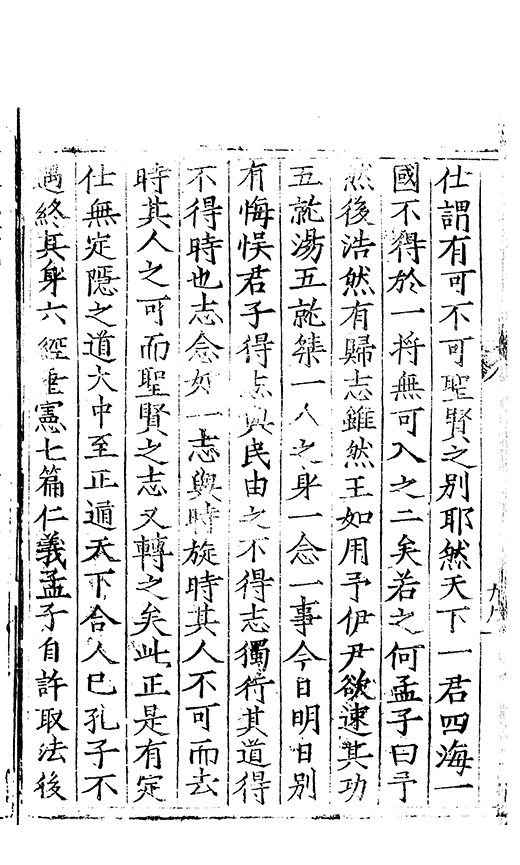 仕謂有可不可聖賢之別耶然天下一君四海一
國不得於一將無可入之二矣若之何孟子曰予
然後浩然有歸志雖然王如用予伊尹欲速其功
五就湯五就桀一人之身一念一事今日明日別
有悔悮君子得志與民由之不得志獨行其道得
不得時也志念如一志與時旋時其人不可而去
時其人之可而聖賢之志又轉之矣此正是有定
仕無定隱之道大中至正通天下合人已孔子不
遇終其身六經垂憲七篇仁義孟子自許取法後